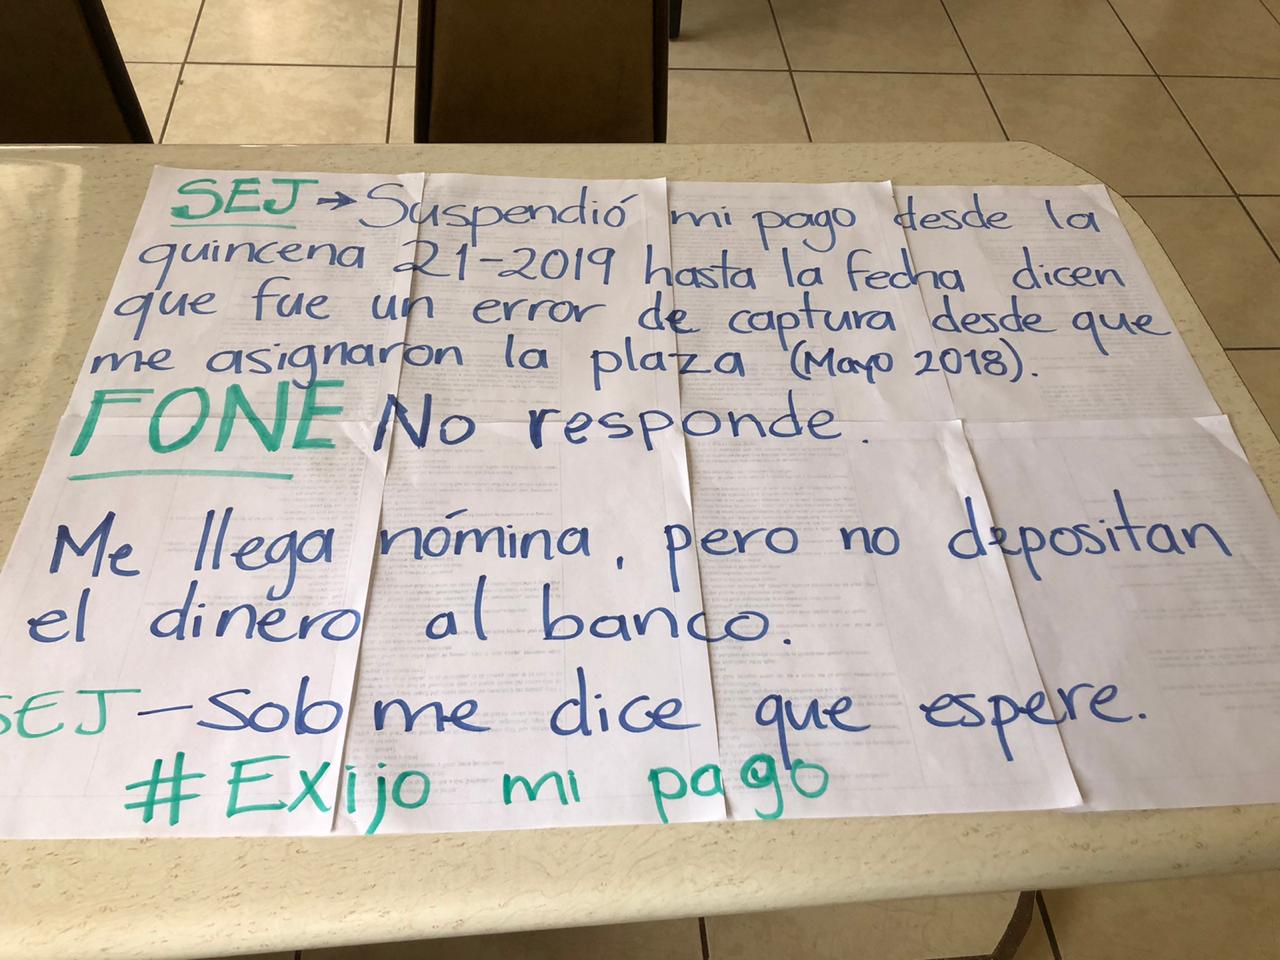 SEJ → Suspendió mi pago desde la
quincena 21-2019 hasta la fecha dicen
que fue un error de captura desde que
me asignaron la plaza (Mayo 2018).
FONE No responde.
Me llega nómina, pero no depositan
el dinero al banco.
SEJ - Sob me dice que espere.
#Exijo mi pago